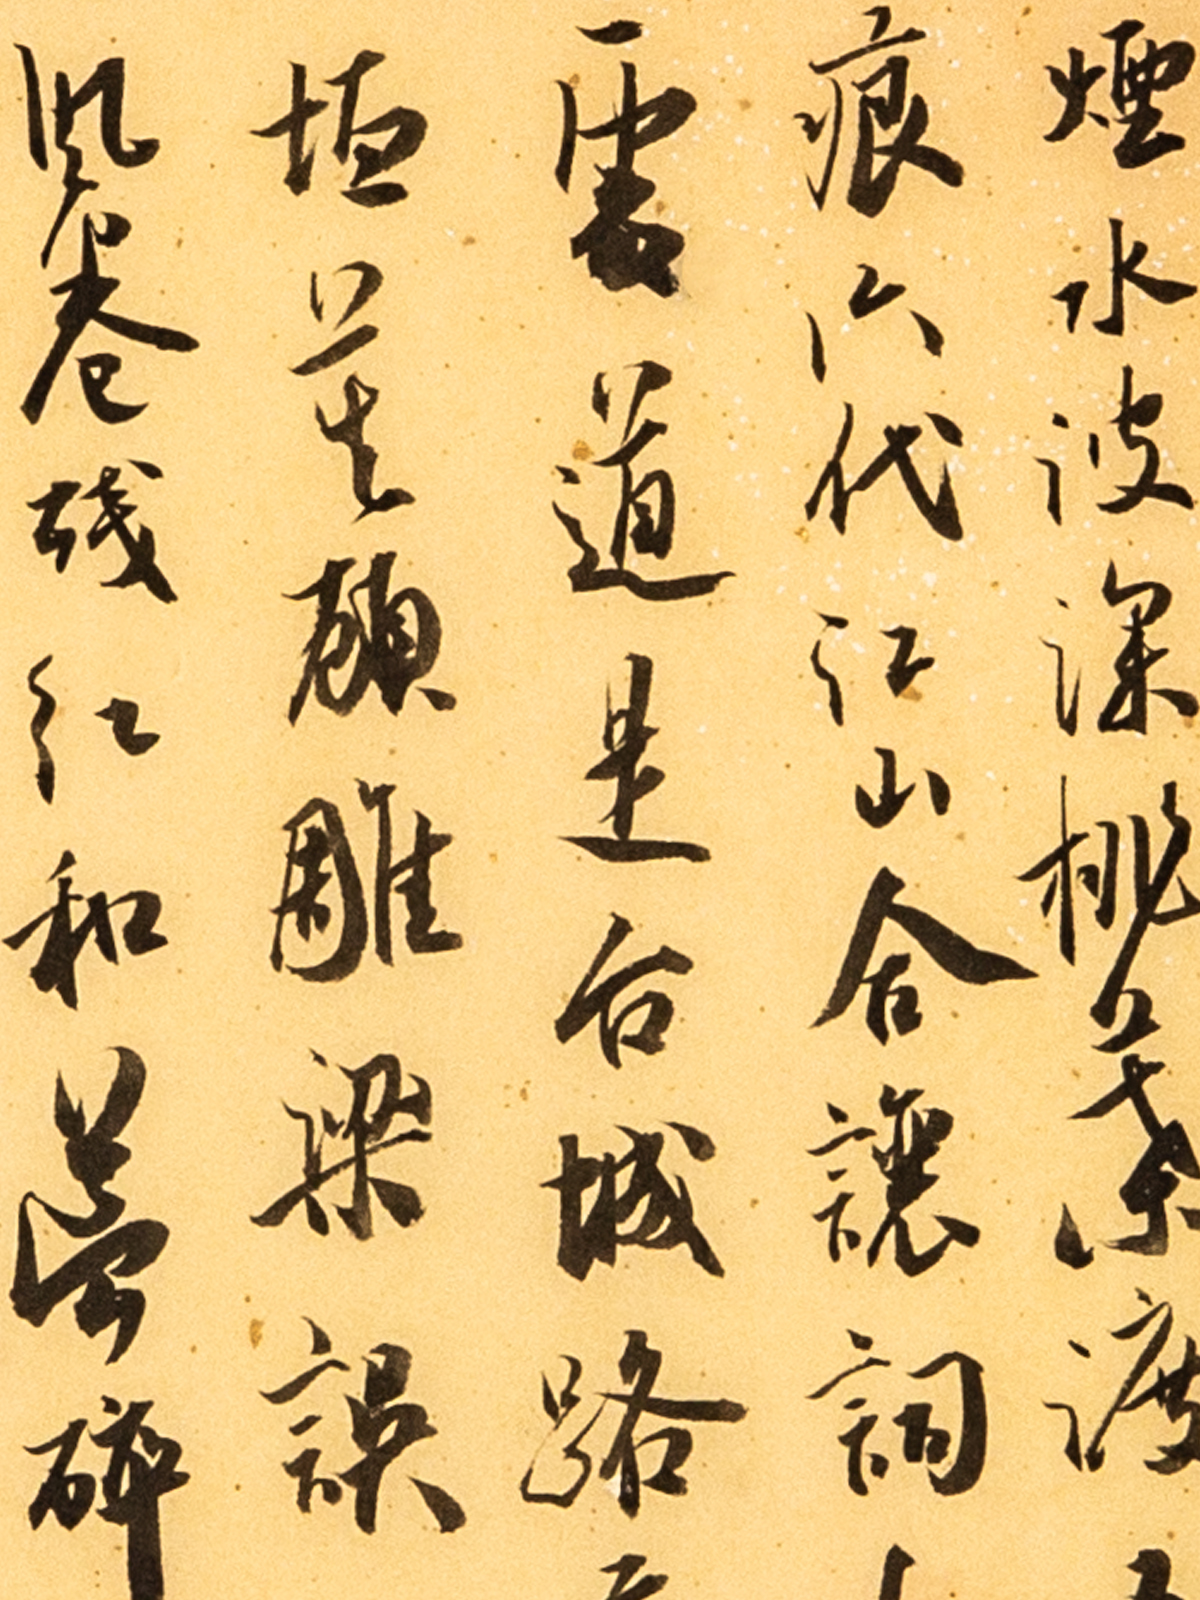 煙水波深桃葉渡
痕六代江山合讓詞
道是台城路
垣顧雕梁誤
風卷殘紅和夢碎